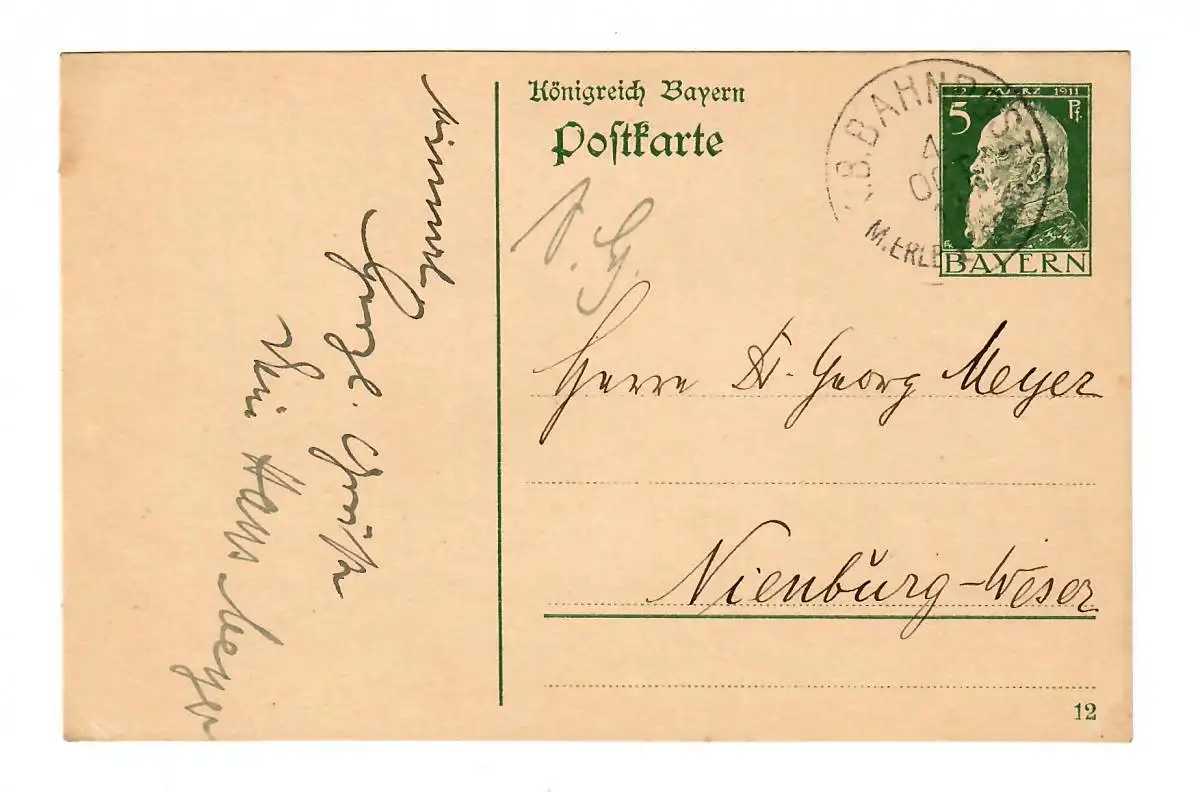 Königreich Bayern
Postkarte
12. MÄRZ 1911
5 Pf.
BAYERN
BAHNPOST
4
OC
M.ERLB
Herrn Dr. Georg Meyer
Nienburg-Weser
12
Herzl. Grüße
Dein Hans Meyer